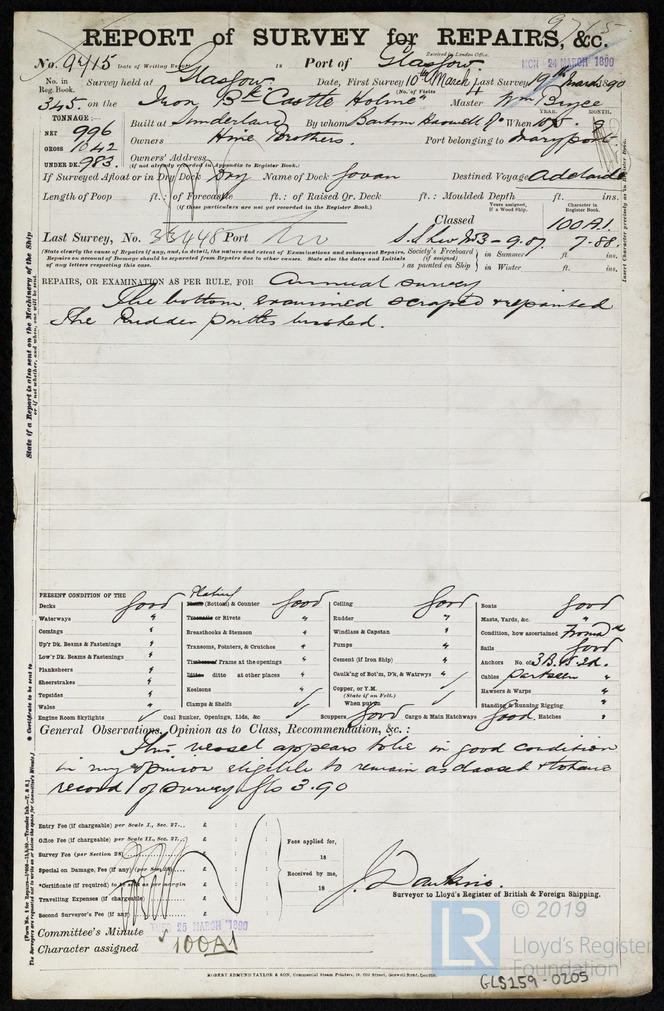 REPORT of SURVEY for REPAIRS, &c.
No. 9415 Date of Writing Report 18 Port of Glasgow Received in London Office MON 24 MARCH 1890
No. in Reg. Book. Survey held at Glasgow Date, First Survey 10th March Last Survey 19th March 1890
(No. of Visits 4
345. on the Iron Bk "Castle Holme" Master Wm Bryce
TONNAGE:— YEAR. MONTH.
NET 996 Built at Sunderland By whom Bartram Haswell & Co When
GROSS 1042 Owners Hine Brothers. Port belonging to Maryport
UNDER DK. 983. Owners' Address
(if not already recorded in Appendix to Register Book.)
If Surveyed Afloat or in Dry Dock Dry Name of Dock Govan Destined Voyage Adelaide
Length of Poop ft.: of Forecastle ft.: of Raised Qr. Deck ft.: Moulded Depth ft. ins.
(if these particulars are not yet recorded in the Register Book.) Years assigned, if a Wood Ship. Character in Register Book.
Classed 100A1.
Last Survey, No. 33448 Port 7.88.
(State clearly the cause of Repairs if any, and, in detail, the nature and extent of Examinations and subsequent Repairs. Society's Freeboard in Summer ft. ins.
Repairs on account of Damage should be separated from Repairs due to other causes. State also the dates and Initials (if assigned)
of any letters respecting this case.) as painted on Ship in Winter ft. ins.
REPAIRS, OR EXAMINATION AS PER RULE, FOR Annual survey
The bottom examined scraped & repainted
The Rudder pintles bushed.
State if a Report is also sent on the Machinery of the Ship
PRESENT CONDITION OF THE
Decks Good
Waterways "
Comings "
Up'r Dk. Beams & Fastenings "
Low'r Dk. Beams & Fastenings "
Planksheers "
Sheerstrakes "
Topsides "
Wales "
Engine Room Skylights ✓
Plating (Bottom) & Counter Good
Treenails or Rivets "
Breasthooks & Stemson "
Transoms, Pointers, & Crutches "
Timbers of Frame at the openings "
Ditto ditto at other places "
Keelsons "
Clamps & Shelfs ✓
Coal Bunker, Openings, Lids, &c ✓
Ceiling Good
Rudder "
Windlass & Capstan "
Pumps "
Cement (if Iron Ship) "
Caulk'ng of Bot'm, D'k, & Watrwys "
Copper, or Y.M. ✓
(State if on Felt.)
When put on ✓
Scuppers Good Cargo & Main Hatchways Good, Hatches "
Boats Good
Masts, Yards, &c. "
Condition, how ascertained From dk
Sails Good
Anchors No. of 3B. 1S. 2K.
Cables "
Hawsers & Warps "
Standing & Running Rigging "
General Observations, Opinion as to Class, Recommendation, &c.:
This vessel appears to be in good condition
in my opinion eligible to remain as classed & to have
record of survey Gls 3.90
Entry Fee (if chargeable) per Scale I., Sec. 27... £ : :
Office Fee (if chargeable) per Scale II., Sec. 27... £ : :
Survey Fee (per Section 28) £ : :
Special on Damage, Fee (if any) (per Sec. 28) £ : :
*Certificate (if required) to be sent as per margin £ : :
Travelling Expenses (if chargeable) £ : :
Second Surveyor's Fee (if any) £ : :
Fees applied for,
18
Received by me,
18
J. Dawkins.
Surveyor to Lloyd's Register of British & Foreign Shipping.
Committee's Minute TUES 25 MARCH 1890
Character assigned 100A1
ROBERT EDMUND TAYLOR & SON, Commercial Steam Printers, 19, Old Street, Goswell Road, London.
LR © 2019 Lloyd's Register Foundation
GLS259-0205